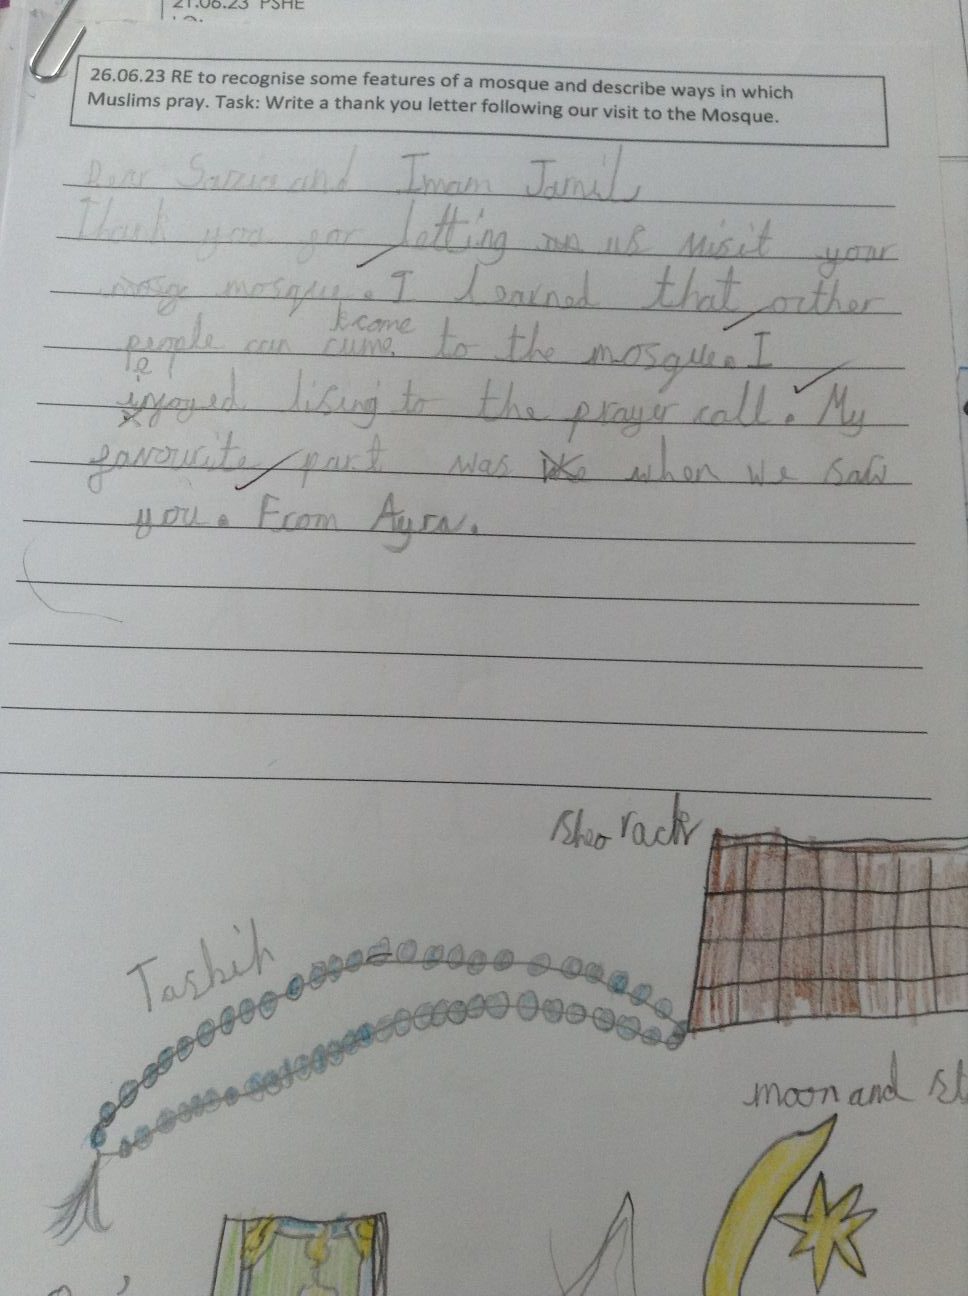 21.06.23 PSHE
26.06.23 RE to recognise some features of a mosque and describe ways in which
Muslims pray. Task: Write a thank you letter following our visit to the Mosque.
Dear and Imam Jamil
Thank you for letting us visit your
mosque. I learned that orther
come
people can cume to the mosque. I
e
injoyed lising to the prayer call. My
favourite part was when we saw
you. From Ayra.
Sheo rack
Tasbih
moon and st